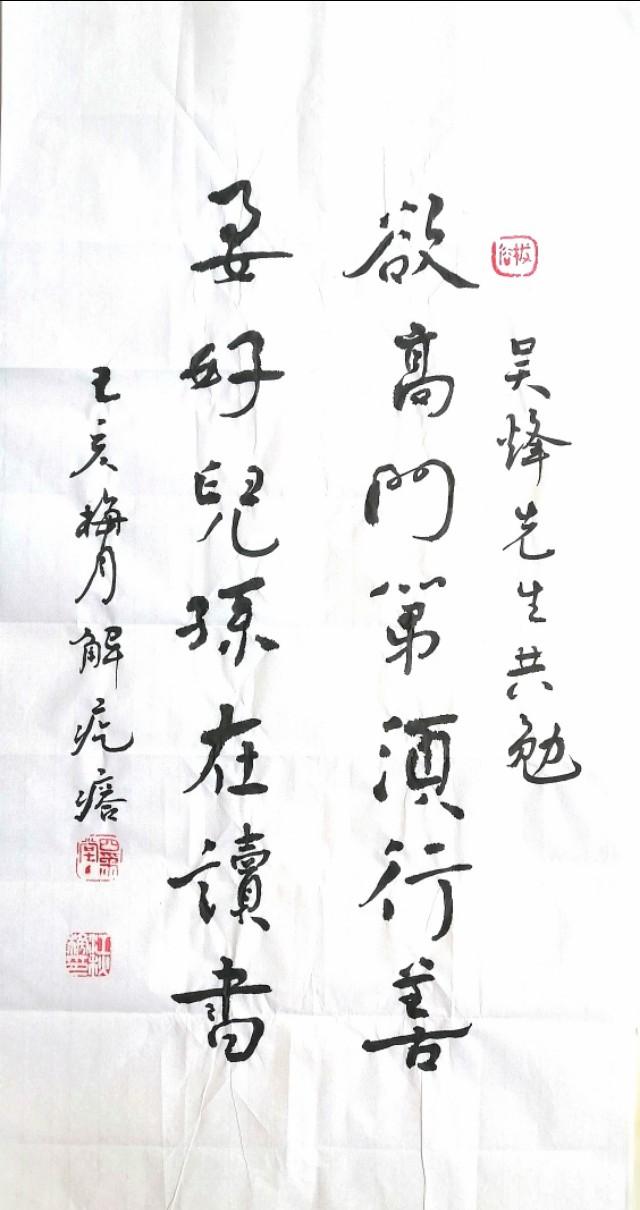 吴烽先生共勉
欲高門第須行善
要好兒孫在讀書
亥梅月解疙瘩